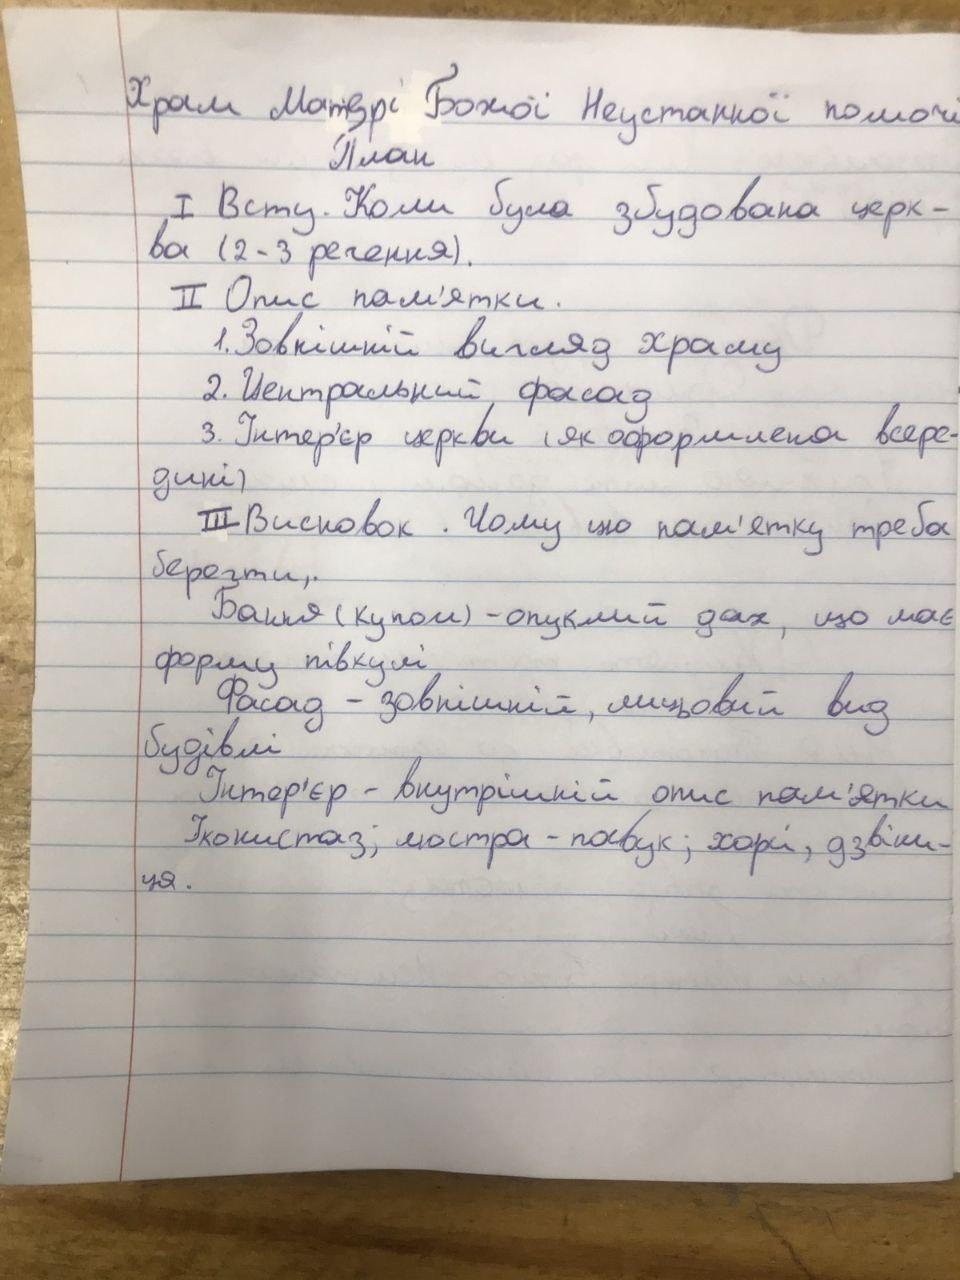 Храм Матері Божої Неустанної помочі
План
I Всту. Коли була збудована церк-
ва (2-3 речення).
II Опис пам'ятки.
1. Зовнішній вигляд храму
2. Центральний фасад
3. Інтер'єр церкви (як оформлена всере-
дині)
III Висновок. Чому цю пам'ятку треба
берегти,.
Баня (купол) - опуклий дах, що має
форму півкулі
Фасад - зовнішній, лицьовий вид
будівлі
Інтер'єр - внутрішній опис пам'ятки
Іконистаз; люстра - павук; хорі, дзвіни-
ця.